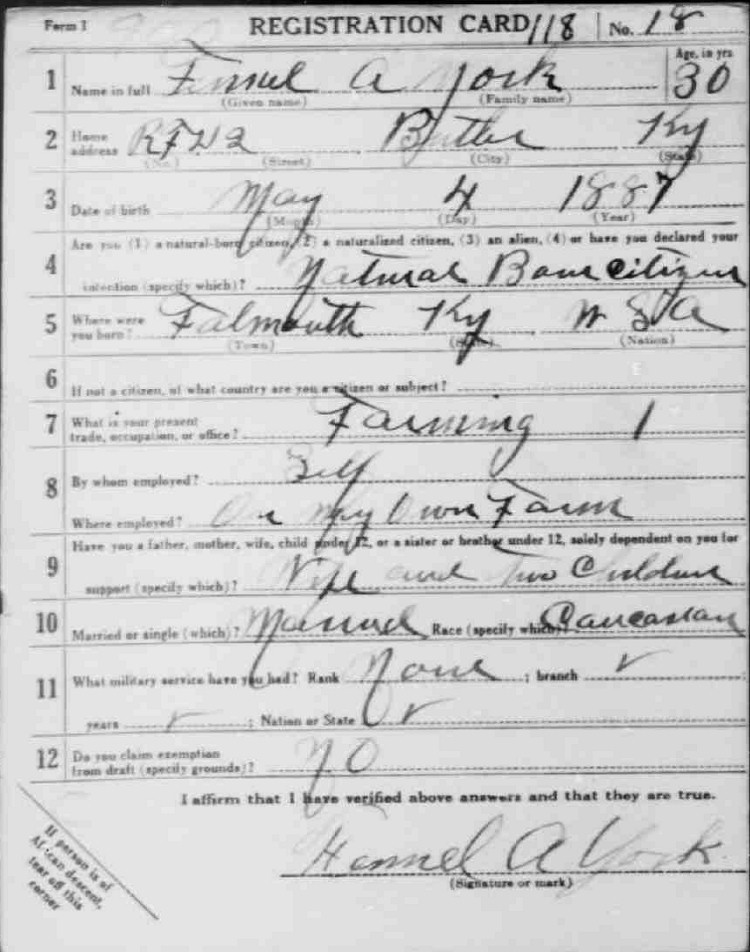 Form 1 REGISTRATION CARD 118 No. 18
1 Name in full A York Age, in yrs 30
(Given name) (Family name)
2 Home address RFD 2 Butler Ky
(No.) (Street) (City) (State)
3 Date of birth May 4 1887
(Month) (Day) (Year)
Are you (1) a natural-born citizen, (2) a naturalized citizen, (3) an alien, (4) or have you declared your
4 intention (specify which)? Natural Born citizen
5 Where were you born? Falmouth Ky USA
(Town) (State) (Nation)
6 If not a citizen, of what country are you a citizen or subject?
7 What is your present trade, occupation, or office? Farming 1
8 By whom employed? Self
Where employed? On My Own Farm
9 Have you a father, mother, wife, child under 12, or a sister or brother under 12, solely dependent on you for
support (specify which)? Wife and Two Children
10 Married or single (which)? Married Race (specify which)? Caucasian
11 What military service have you had? Rank None ; branch ✓
years ✓ ; Nation or State ✓
12 Do you claim exemption from draft (specify grounds)? NO
I affirm that I have verified above answers and that they are true.
A York
(Signature or mark)
If person is of
African descent,
tear off this
corner